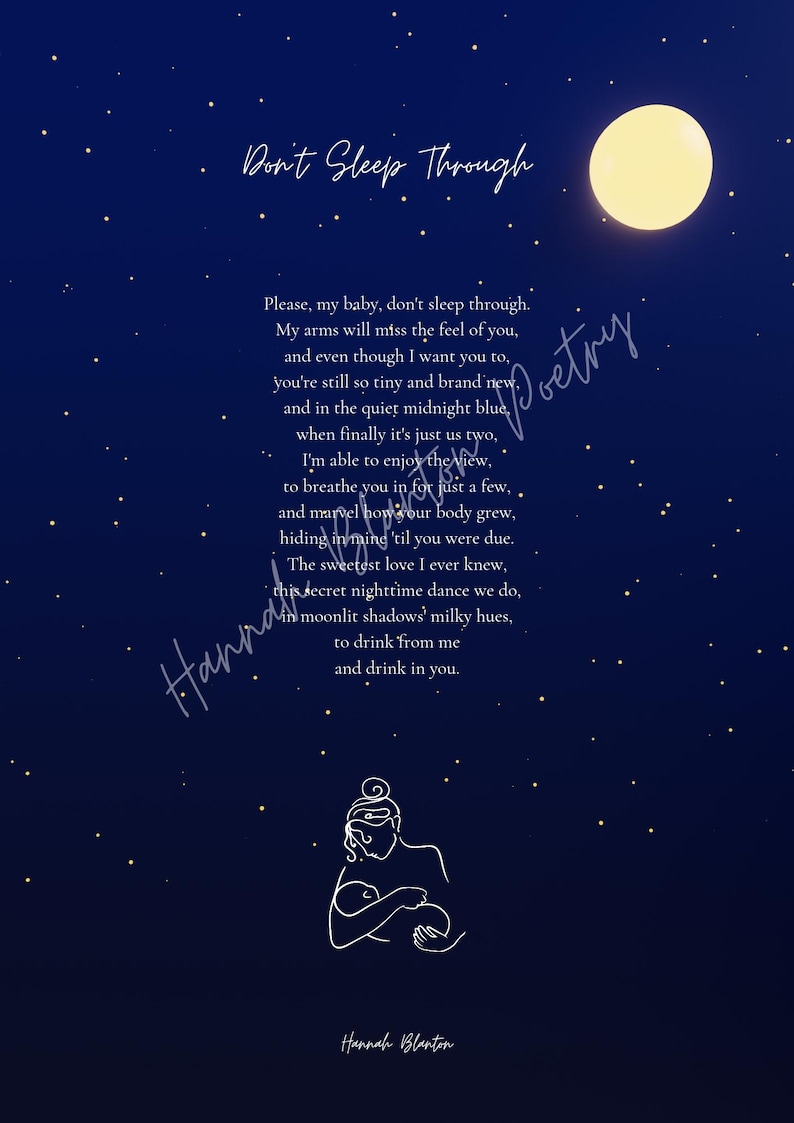 Don't Sleep Through
Please, my baby, don't sleep through.
My arms will miss the feel of you,
and even though I want you to,
you're still so tiny and brand new,
and in the quiet midnight blue,
when finally it's just us two,
I'm able to enjoy the view,
to breathe you in for just a few,
and marvel how your body grew,
hiding in mine 'til you were due.
The sweetest love I ever knew,
this secret nighttime dance we do,
in moonlit shadows' milky hues,
to drink from me
and drink in you.
Hannah Blanton Poetry
Hannah Blanton